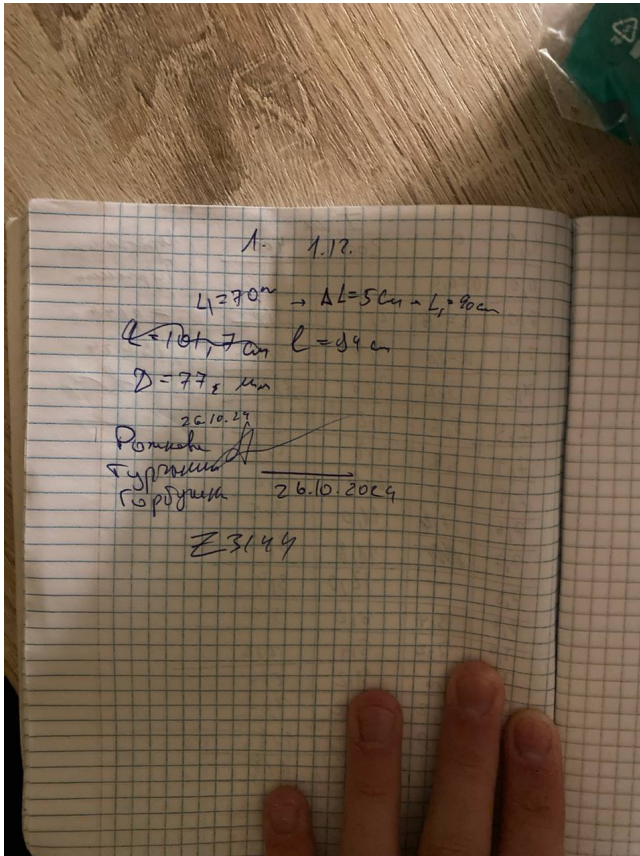 1. 1.12.
L₁=70см → ΔL=5см → L₁=90см
l=101,7 см l=94 см
D=77, мм
26.10.24
Рожкова
Горбушин
26.10.2024
Z3144